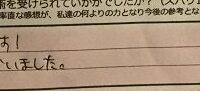 術を受けられていかがでしたか？（ズバリ
率直な感想が、私達の何よりの力となり今後の参考とな
お！
いました。